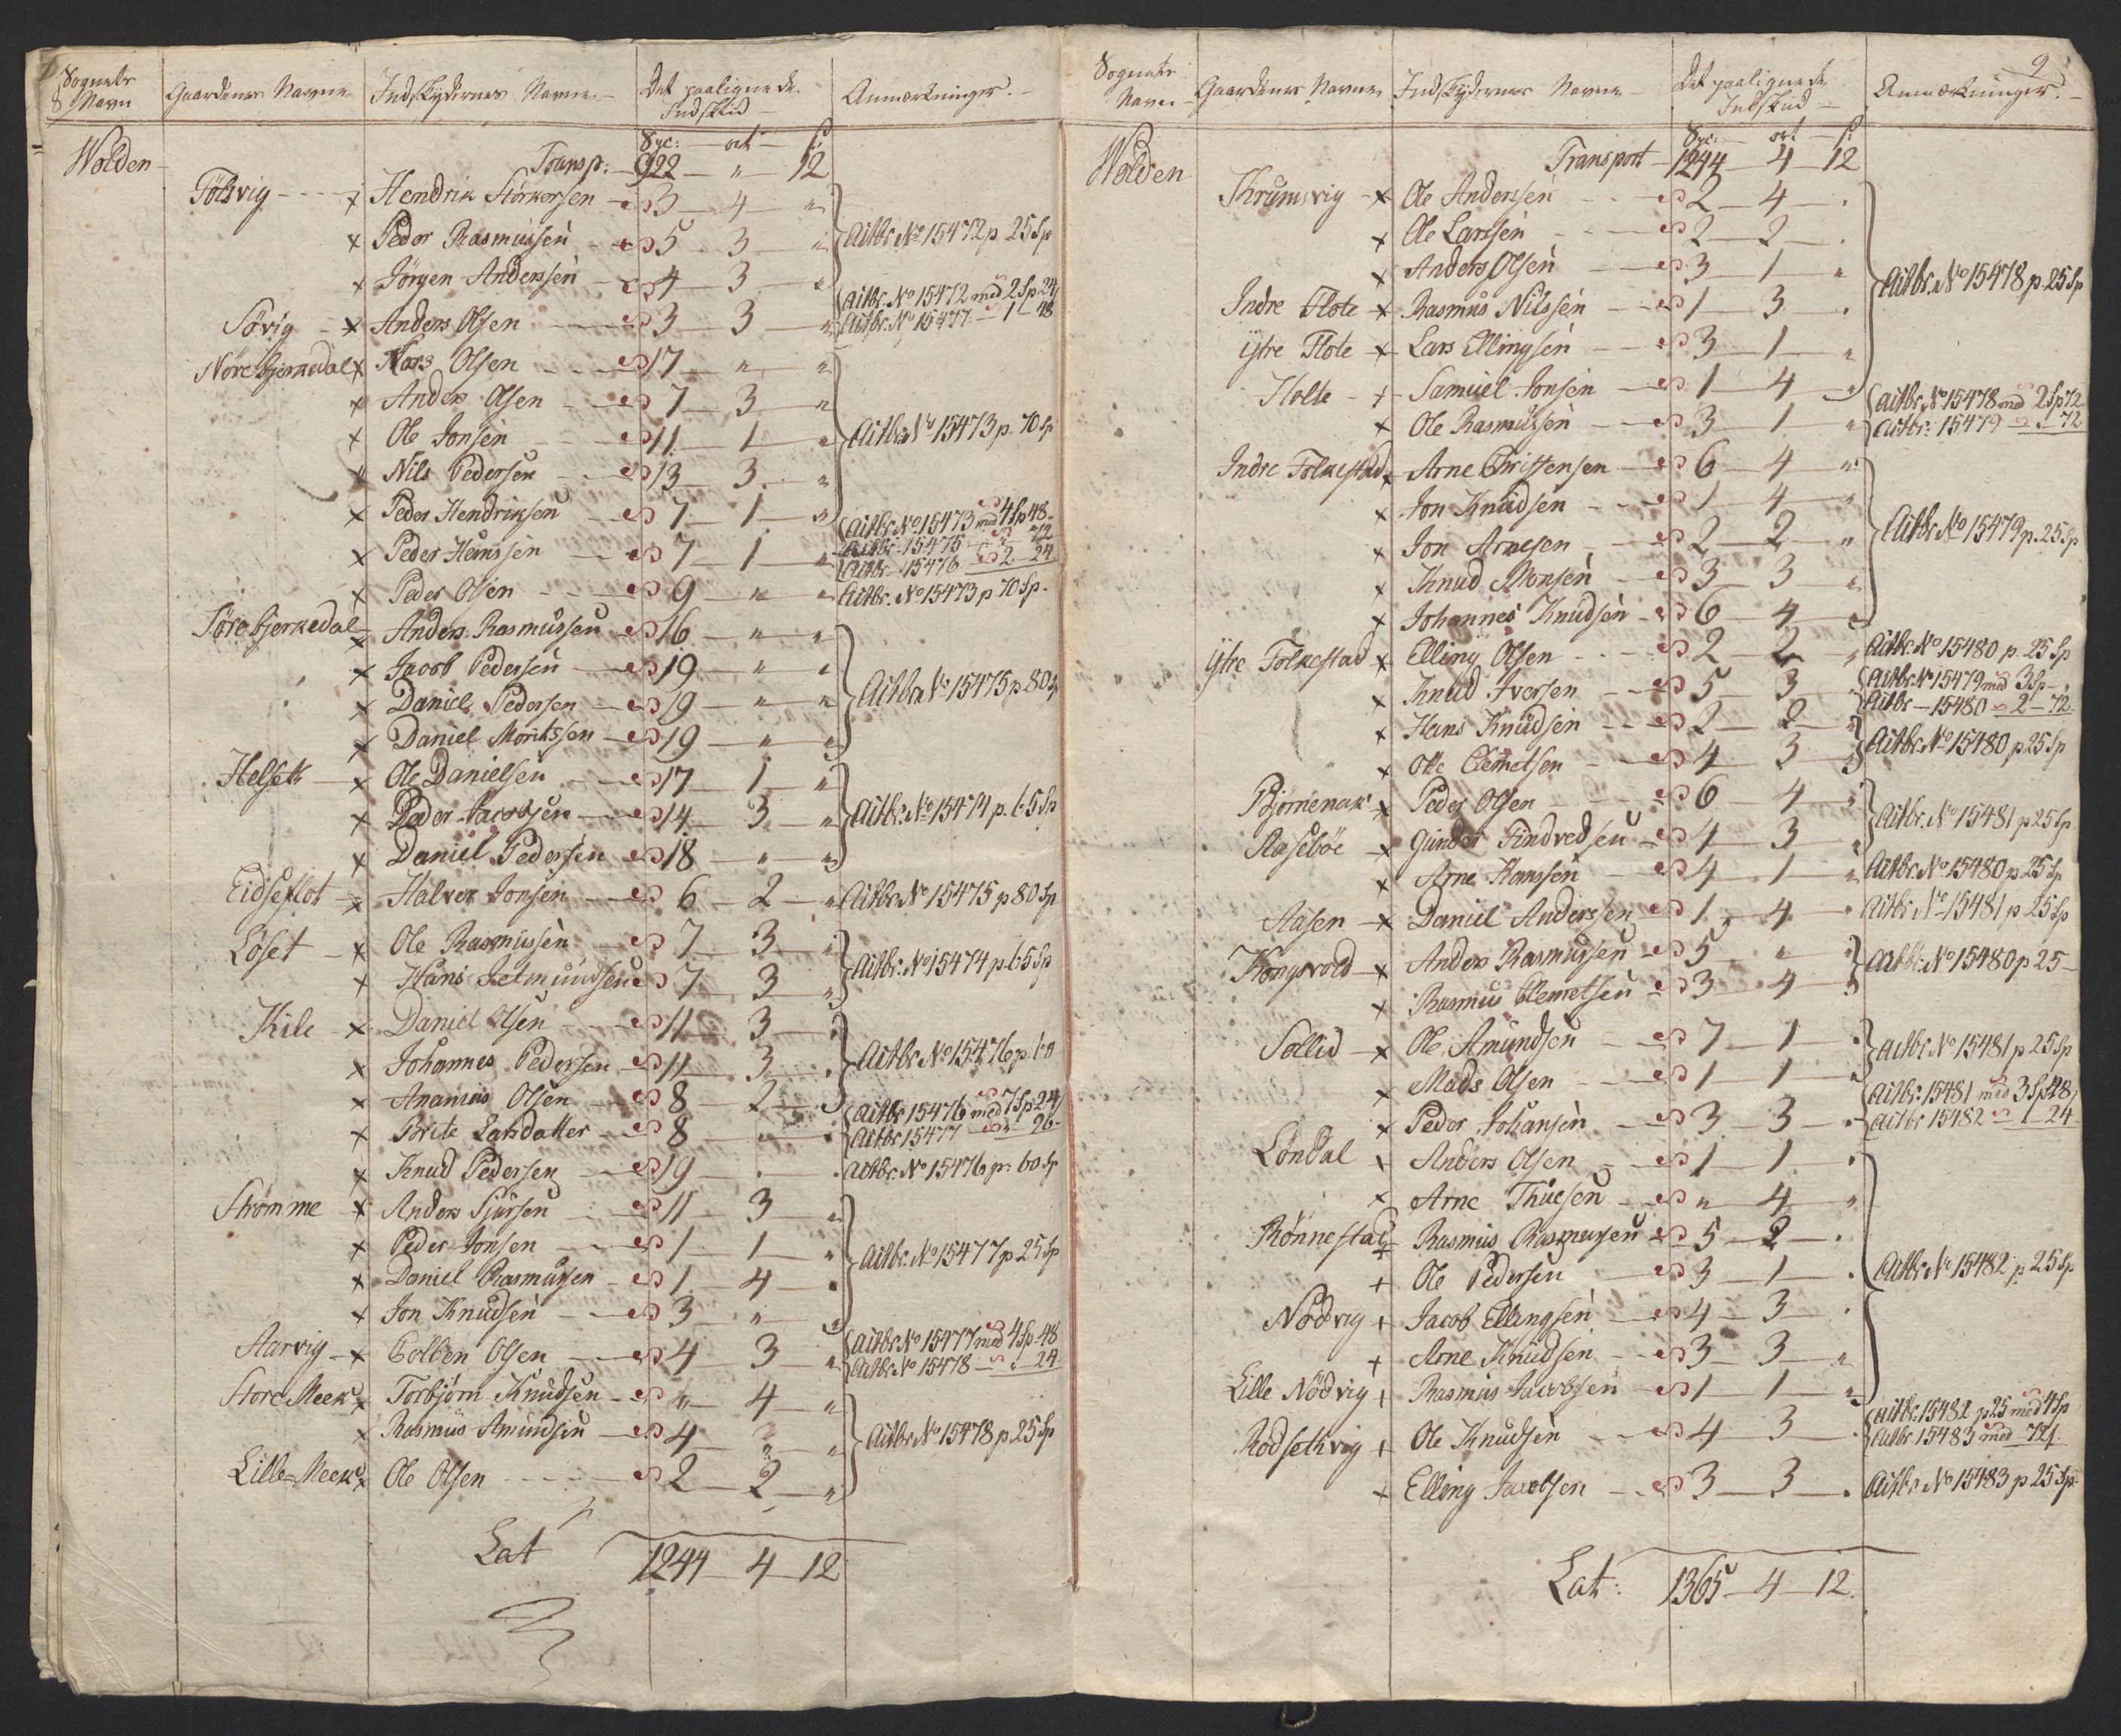 Sognets Navn Gaardenes Navne Indskydernes Navne Det paalignede Indskud Anmærkninger
Spc: ort ß:
Wolden Transp: 922 " 12
Fölsvig x Hendrik Störkersen 3 4 "
x Peder Rasmussen 5 3 " Aitbr. No 15472 p 25 Sp
x Jörgen Anderssen 4 3 "
Aitbr. No 15472 med 2 Sp 24
Sövig x Anders Olsen 3 3 " Aitbr. No 15477 1 48
Nöre bjerkedal x Olsen 17 " "
x Anders Olsen 7 3 "
x Ole Jonsen 11 1 " Aitbr. No 15473 p. 70 Sp
x Nils Pedersen 13 3 "
x Peder Hendriksen 7 1 " Aitbr. No 15473 med 4 Sp 48
Aitbr. 15475 72
x Peder Hanssen 7 1 " Aitbr. 15476 2 24
x Peder Olsen 9 " " Aitbr. No 15473 p 70 Sp.
Söre bjerkedal x Anders Rasmussen 16 " "
x Jacob Pedersen 19 " "
x Daniel Pedersen 19 " " Aitbr. No 15475 p 80 Sp
x Daniel Moritssen 19 " "
Helset x Ole Danielsen 17 1 "
x Peder Jacobsen 14 3 " Aitbr. No 15474 p. 65 Sp
x Daniel Pedersen 18 " "
Eidseflot x Halvor Jonsen 6 2 " Aitbr No 15475 p 80 Sp
Löset x Ole Rasmussen 7 3 "
x Hans Jetmundsen 7 3 " Aitbr. No 15474 p. 65 Sp
Kile x Daniel Olsen 11 3 "
x Johannes Pedersen 11 3 " Aitbr No 15476 p. 60
x Ananias Olsen 8 2 "
Aitbr 15476 med 7 Sp 24
x Brite Larsdatter 8 " " Aitbr 15477 96
x Knud Pedersen 19 . . Aitbr. No 15476 p: 60 Sp
Strömme x Anders Sjursen 11 3 "
x Peder Jonsen 1 1 " Aitbr. No 15477 p 25 Sp
x Daniel Rasmussen 1 4 "
x Jon Knudsen 3 " "
Aitbr No 15477 med 4 Sp 48
Aarvig x Colben Olsen 4 3 " Aitbr No 15478 24
Store Meek x Torbjörn Knudsen " 4 "
x Rasmus Amundsen 4 " Aitbr No 15478 p. 25 Sp
Lille Meek x Ole Olsen 2 2 "
Lat 1244 4 12
9
Sognets Navn Gaardenes Navne Indskydernes Navne Det paalignede Indskud Anmærkninger.
Spc: ort ß:
Wolden Transport 1244 4 12
Krumsvig x Ole Andersen 2 4 .
x Ole Larssen 2 2 .
x Anders Olsen 3 1 " Aitbr. No 15478 p 25 Sp
Indre Flote x Rasmus Nilssen 1 3 .
ijtre Flote x Lars Ellingsen 3 1 "
Holte x Samuel Jonsen 1 4 " Aitbr. No 15478 med 2 Sp 72
x Ole Rasmussen 3 1 " Aitbr: 15479 72
Indre Folkestad x Arne Christensen 6 4 "
x Jon Knudsen 1 4 "
x Jon Arnesen 2 2 " Aitbr No 15479 p. 25 Sp
x Knud Monsen 3 3 "
x Johannes Knudsen 6 4 "
ijtre Folkestad x Elling Olsen 2 2 " Aitbr. No 15480 p. 25 Sp
x Knud Iversen 5 3 " Aitbr No 15479 med 3 Sp
Aitbr 15480 2 72
x Hans Knudsen 2 2 " Aitbr. No 15480 p 25 Sp
x Otte Clemetsen 4 3 "
Björnenak x Peder Olsen 6 4 " Aitbr. No 15481 p 25 Sp
Aaseböe x Gunder Findvedsen 4 3 "
x Arne Hanssen 4 1 " Aitbr No 15480 p 25 Sp
Aasen x Daniel Anderssen 1 4 . Aitbr No 15481 p 25 Sp
Kongsvold x Anders Rasmussen 5 " " Aitbr. No 15480 p 25
x Rasmus Clemetsen 3 4 "
Sollid x Ole Amundsen 7 1 . Aitbr No 15481 p 25 Sp
x Mads Olsen 1 1 "
Aitbr. 15481 med 3 Sp 48
x Peder Johansen 3 3 . Aitbr 15482 1 24
Löndal x Anders Olsen 1 1 .
x Arne Thuesen " 4 "
Rönnestad x Rasmus Rasmussen 5 2 .
x Ole Pedersen 3 1 . Aitbr No 15482 p 25 Sp
Nödvig x Jacob Ellingsen 4 3 .
x Arne Knudsen 3 3 "
Lille Nödvig x Rasmus Jacobsen 1 1 "
Aitbr 15482 p 25 med 4 Sp
Rodsetvig x Ole Knudsen 4 3 . Aitbr 15483 med 72
x Elling Jacobsen 3 3 . Aitbr No 15483 p 25 Sp
Lat: 1365 4 12